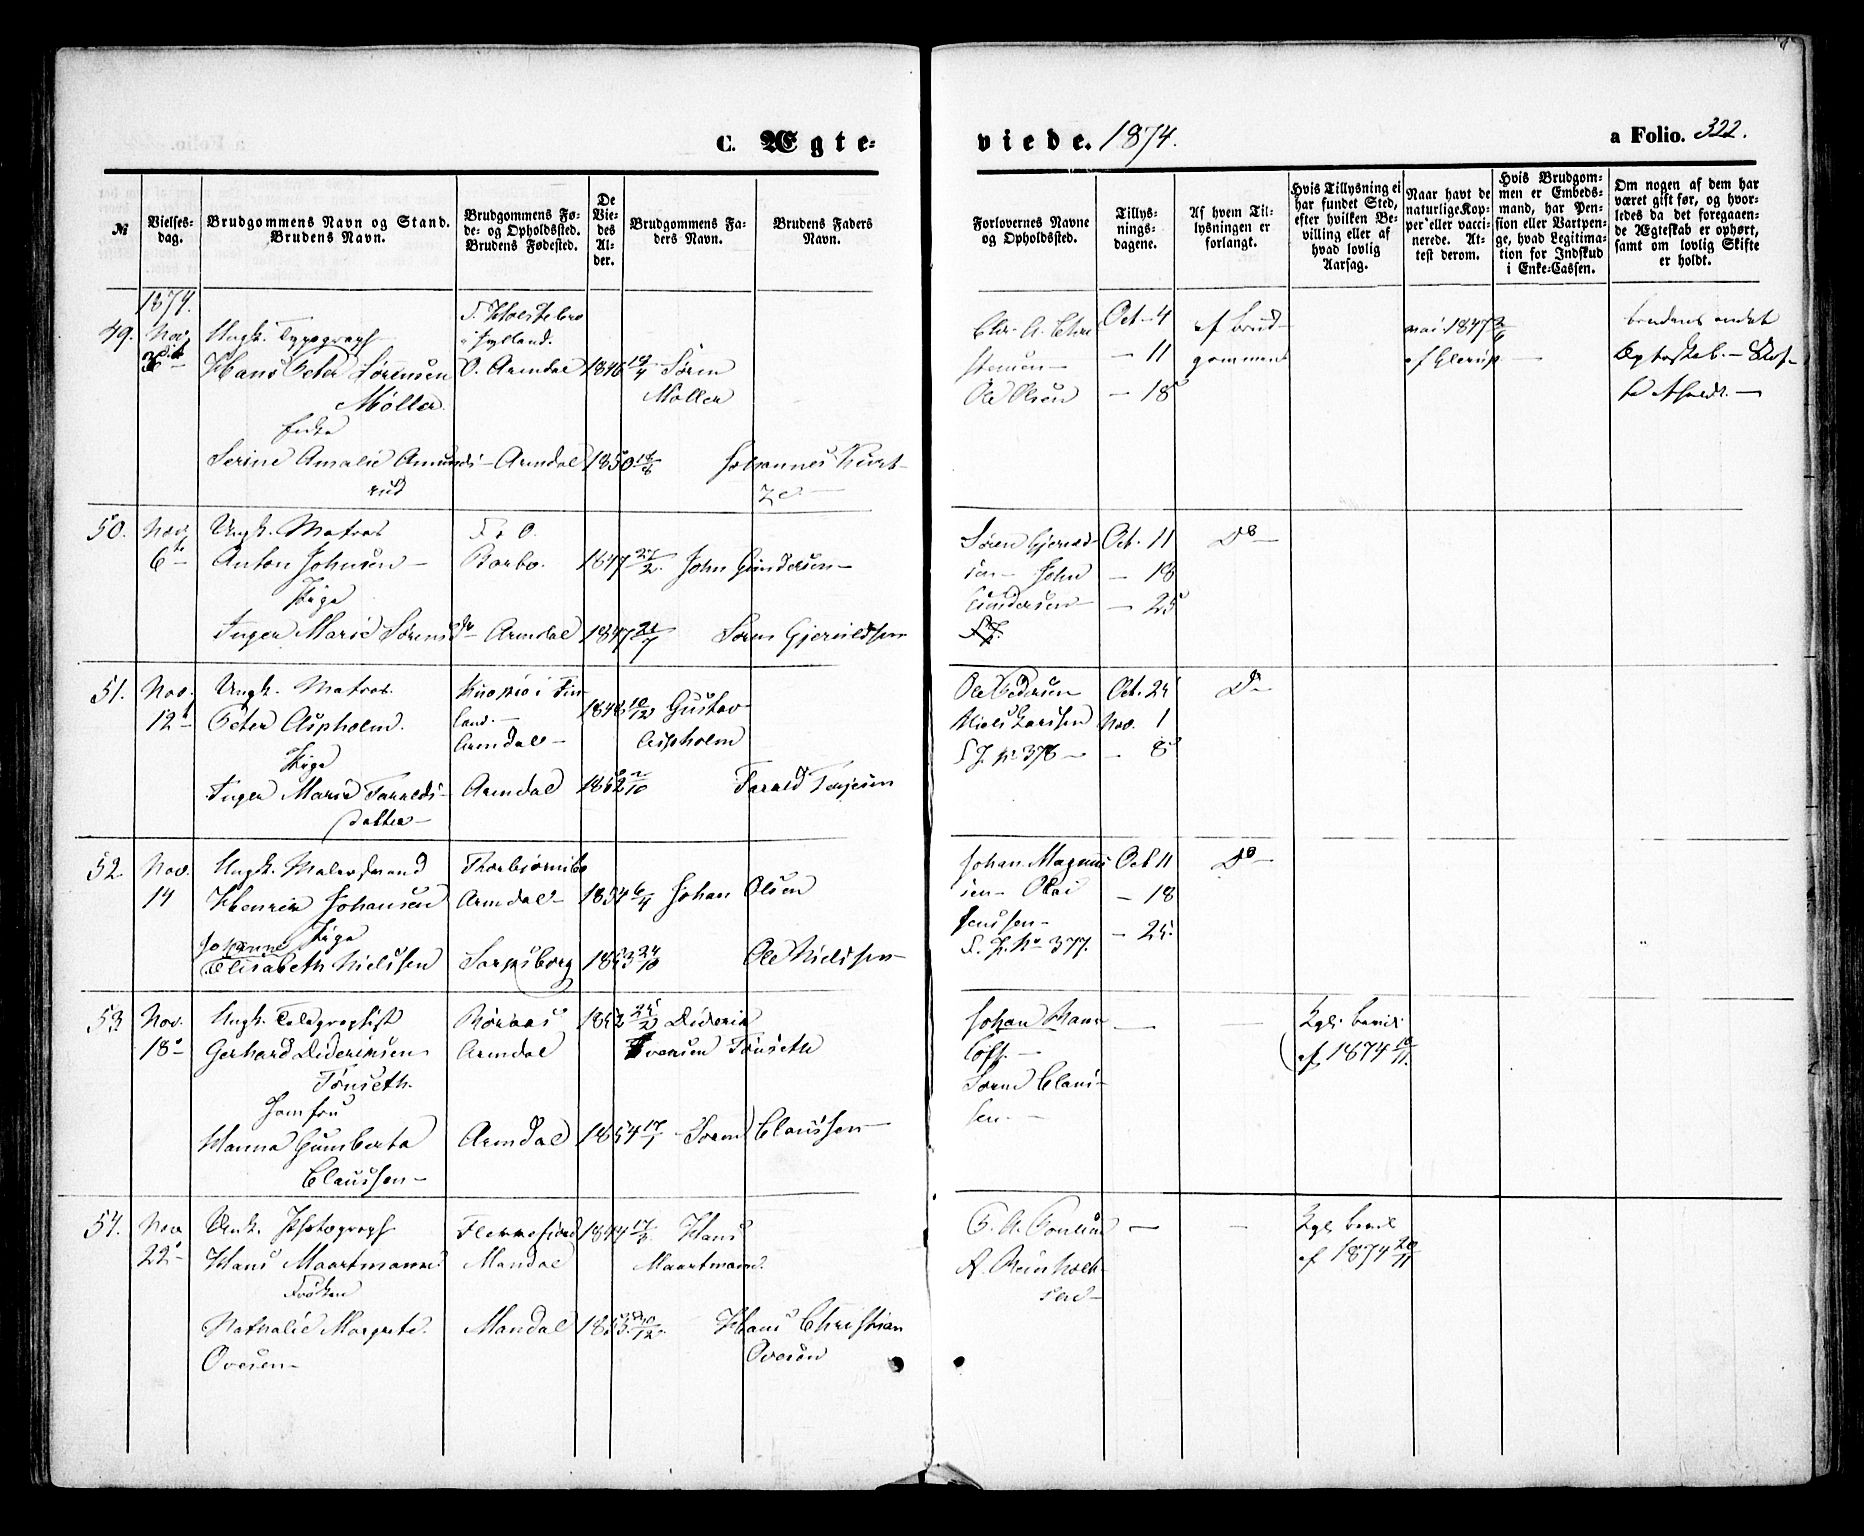 C. Ægte-
viede. 1874.
a Folio. 322.
№
Vielses-
dag.
Brudgommens Navn og Stand.
Brudens Navn.
Brudgommens Fø-
de- og Opholdssted.
Brudens Fødested.
De
Vie-
des
Al-
der.
Brudgommens Fa-
ders Navn.
Brudens Faders
Navn.
Forlovernes Navne
og Opholdssted.
Tillys-
nings-
dagene.
Af hvem Til-
lysningen er
forlangt.
Hvis Tillysning ei
har fundet Sted,
efter hvilken Be-
villing eller af
hvad lovlig
Aarsag.
Naar havt de
naturlige Kop-
per eller vacci-
nerede. At-
test derom.
Hvis Brudgom-
men er Embeds-
mand, har Pen-
sion eller Vartpen-
ge, hvad Legitima-
tion for Indskud
i Enke-Cassen.
Om nogen af dem har
været gift før, og hvor-
ledes da det foregaaen-
de Ægteskab er ophørt,
samt om lovlig Skifte
er holdt.
1874.
49. Nov.
Ungk. Typograph
Hans Peter Sørensen
Møller
Enke
Serine Amalie Amunds-
rud
F. Holstebro
i Jylland.
O. Arendal
Arendal
1846 19/4
1850 18/8
Søren
Møller
Johannes Kurt-
ze
Chr. A. Chri
stensen
Ole Olsen
Oct. 4
11
18
af Brud-
gommen
1847 2/6
Brudens andet
Ægteskab. — Skif-
te afholdt. —
50. Nov.
6te
Ungk. Matros
Anton Johnsen
Pige
Inger Marie Sørensdr
F. & O.
Barbo.
Arendal
1847 27/2
1847 21/7
John Gundersen
Søren Gjeruldsen
Søren Gjeruld-
sen John
Gundersen
Oct. 11
18
25
Do
51. Nov.
12te
Ungk. Matros.
Peter Aspholm.
Pige
Inger Marie Taralds-
datter
Kuopio i Fin
land.
Arendal
Arendal
1848 10/12
1852 2/10
Gustav
Aspholm
Tarald Terjesen
Ole Pedersen
Niels Larssen
S. J. No 376
Oct. 25
Nov. 1
8
Do
52. Nov.
14
Ungk. Malersvend
Henrik Johansen
Pige
Johanne
Elisabeth Nielssen
Thorbjørnsbo
Arendal
Sarpsborg
1854 6/4
1853 24/10
Johan Olsen
Ole Nielssen
Johan Magnus
sen Olai
Jenssen
S. J. No 377.
Oct 11
18
25
Do
53. Nov.
18
Ungk. Telegraphist
Gerhard Dideriksen
Tønseth.
Jomfru
Hanna Gumberta
Claussen
Røraas
Arendal
Arendal
1852 25/2
1854 17/1
Diderik
Iversen Tønseth
Søren Claussen
Johan
Søren Claus-
sen.
Kgl. bevil.
af 1874 10/11.
54. Nov
22
Unk. Photograph
Hans Maartmann
Frøken
Nathalie Margrete
Ovesen
Flekkefjord
Mandal
Mandal
1844 17/3
1853 20/12.
Hans
Maartmann.
Hans Christian
Ovesen
A. Reinholt-
sen
Kgl. bevil.
af 1874 20/11